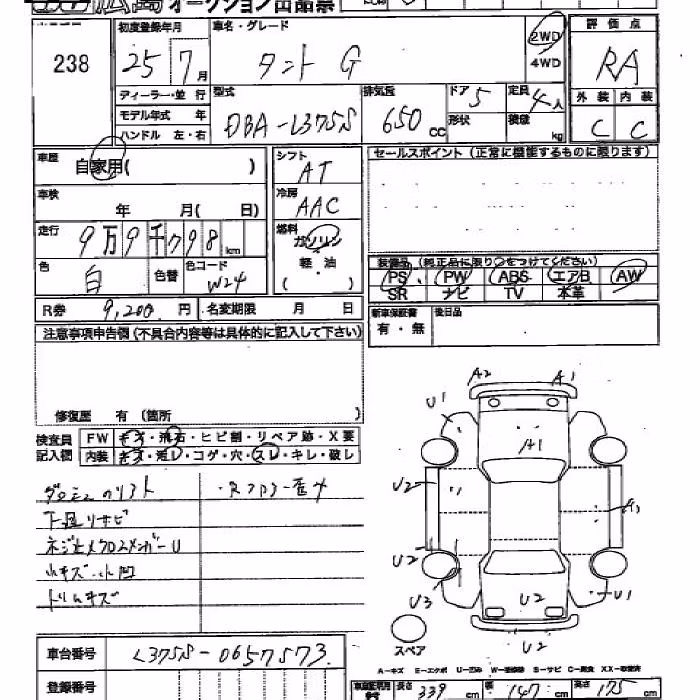 広島 オークション出品票
238
初度登録年月
25 7月
車名・グレード
タント G
2WD
4WD
評価点
RA
ディーラー・並行
モデル年式 年
ハンドル 左・右
型式
DBA-L375S
排気量
650 cc
ドア 5
形状
定員 4人
積載 kg
外装 内装
C C
車歴
自家用( )
シフト
AT
セールスポイント (正常に機能するものに限ります)
車検
年 月( 日)
冷房
AAC
走行
9万9千798km
燃料
ガソリン
軽・油
( )
色
白
色替
色コード
W24
装備品 (純正品に限り○をつけてください)
PS PW ABS エアB AW
SR ナビ TV 本革
R券 9,200 円
名変期限 月 日
新車保証書
有・無
後日品
注意事項申告欄 (不具合内容等は具体的に記入して下さい)
修復歴 有 (箇所 )
検査員
記入欄
FW キズ・飛石・ヒビ割・リペア跡・X要
内装 キズ・汚レ・コゲ・穴・スレ・キレ・破レ
下廻リサビ
小キズ・小凹
トリムキズ
A2 A1
U1
A1
U2
A1
U2
U3
U2
U1
U2
スペア
A-キズ E-エクボ U-凹み W-補修跡 S-サビ C-腐食 XX-交換済
車台番号
L375S-0657573
登録番号
長さ 339 cm
幅 147 cm
高さ 175 cm